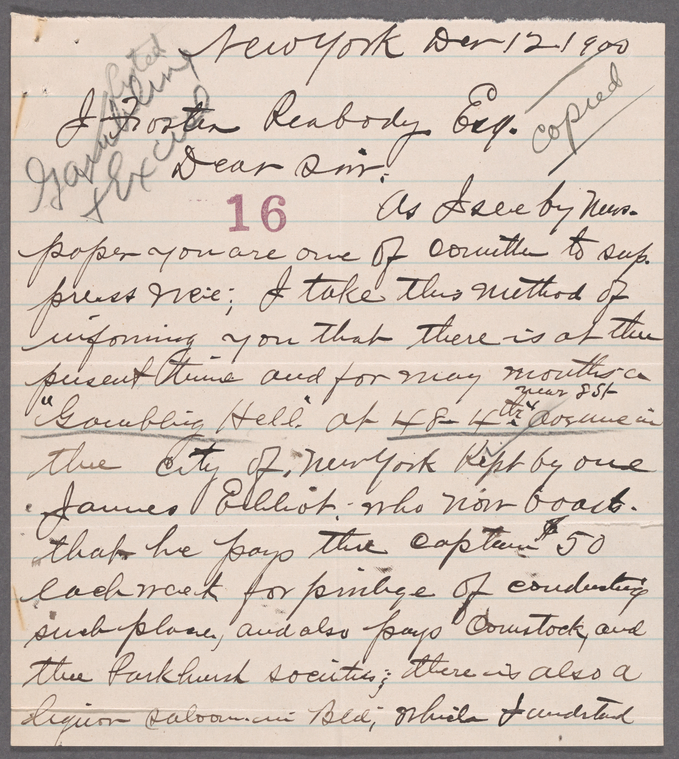 New York Dec 12 1900
Listed
Gambling
& Excise
copied
J Foster Peabody Esq.
Dear Sir.
16
As I see by News-
paper you are one of comittee to sup-
press vice; I take this method of
informing you that there is at the
present time and for many months a
near 8 St
"Gambling Hell" at 48-4th Avenue in
the City of New York Kept by one
James Elliot. who now boasts
that he pays the captain $50
each week for privlege of conducting
such place, and also pays Comstock, and
the Parkhurst societies; there is also a
liquor saloon in Bld, which I undstand